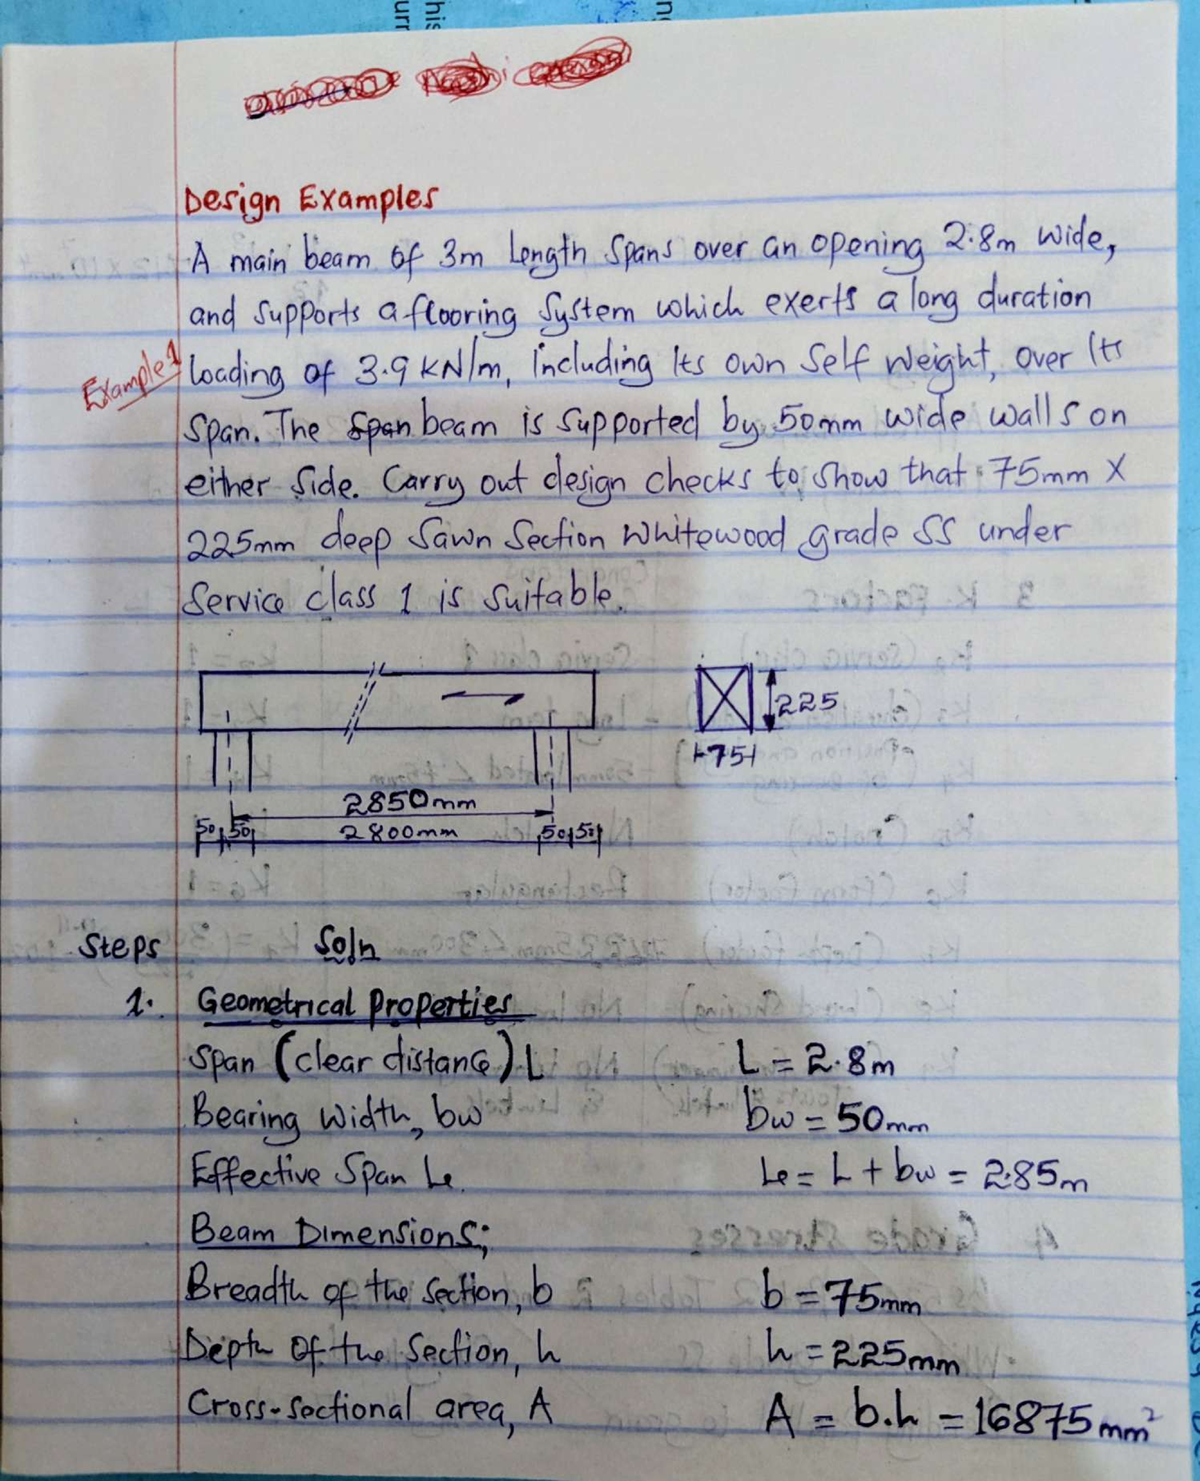 Design Examples
A main beam of 3m length spans over an opening 2.8m wide,
and supports a flooring system which exerts a long duration
Example 1
loading of 3.9 kN/m, including its own self weight, over its
span. The beam is supported by 50mm wide walls on
either side. Carry out design checks to show that 75mm X
225mm deep sawn section whitewood grade SS under
service class 1 is suitable.
225
75
2850mm
50 50 2800mm 50 50
Steps Soln
1. Geometrical Properties
Span (clear distance) L L = 2.8m
Bearing width, bw bw = 50mm
Effective Span Le. Le = L + bw = 2.85m
Beam Dimensions;
Breadth of the section, b b = 75mm
Depth of the section, h h = 225mm
Cross-sectional area, A A = b.h = 16875mm²